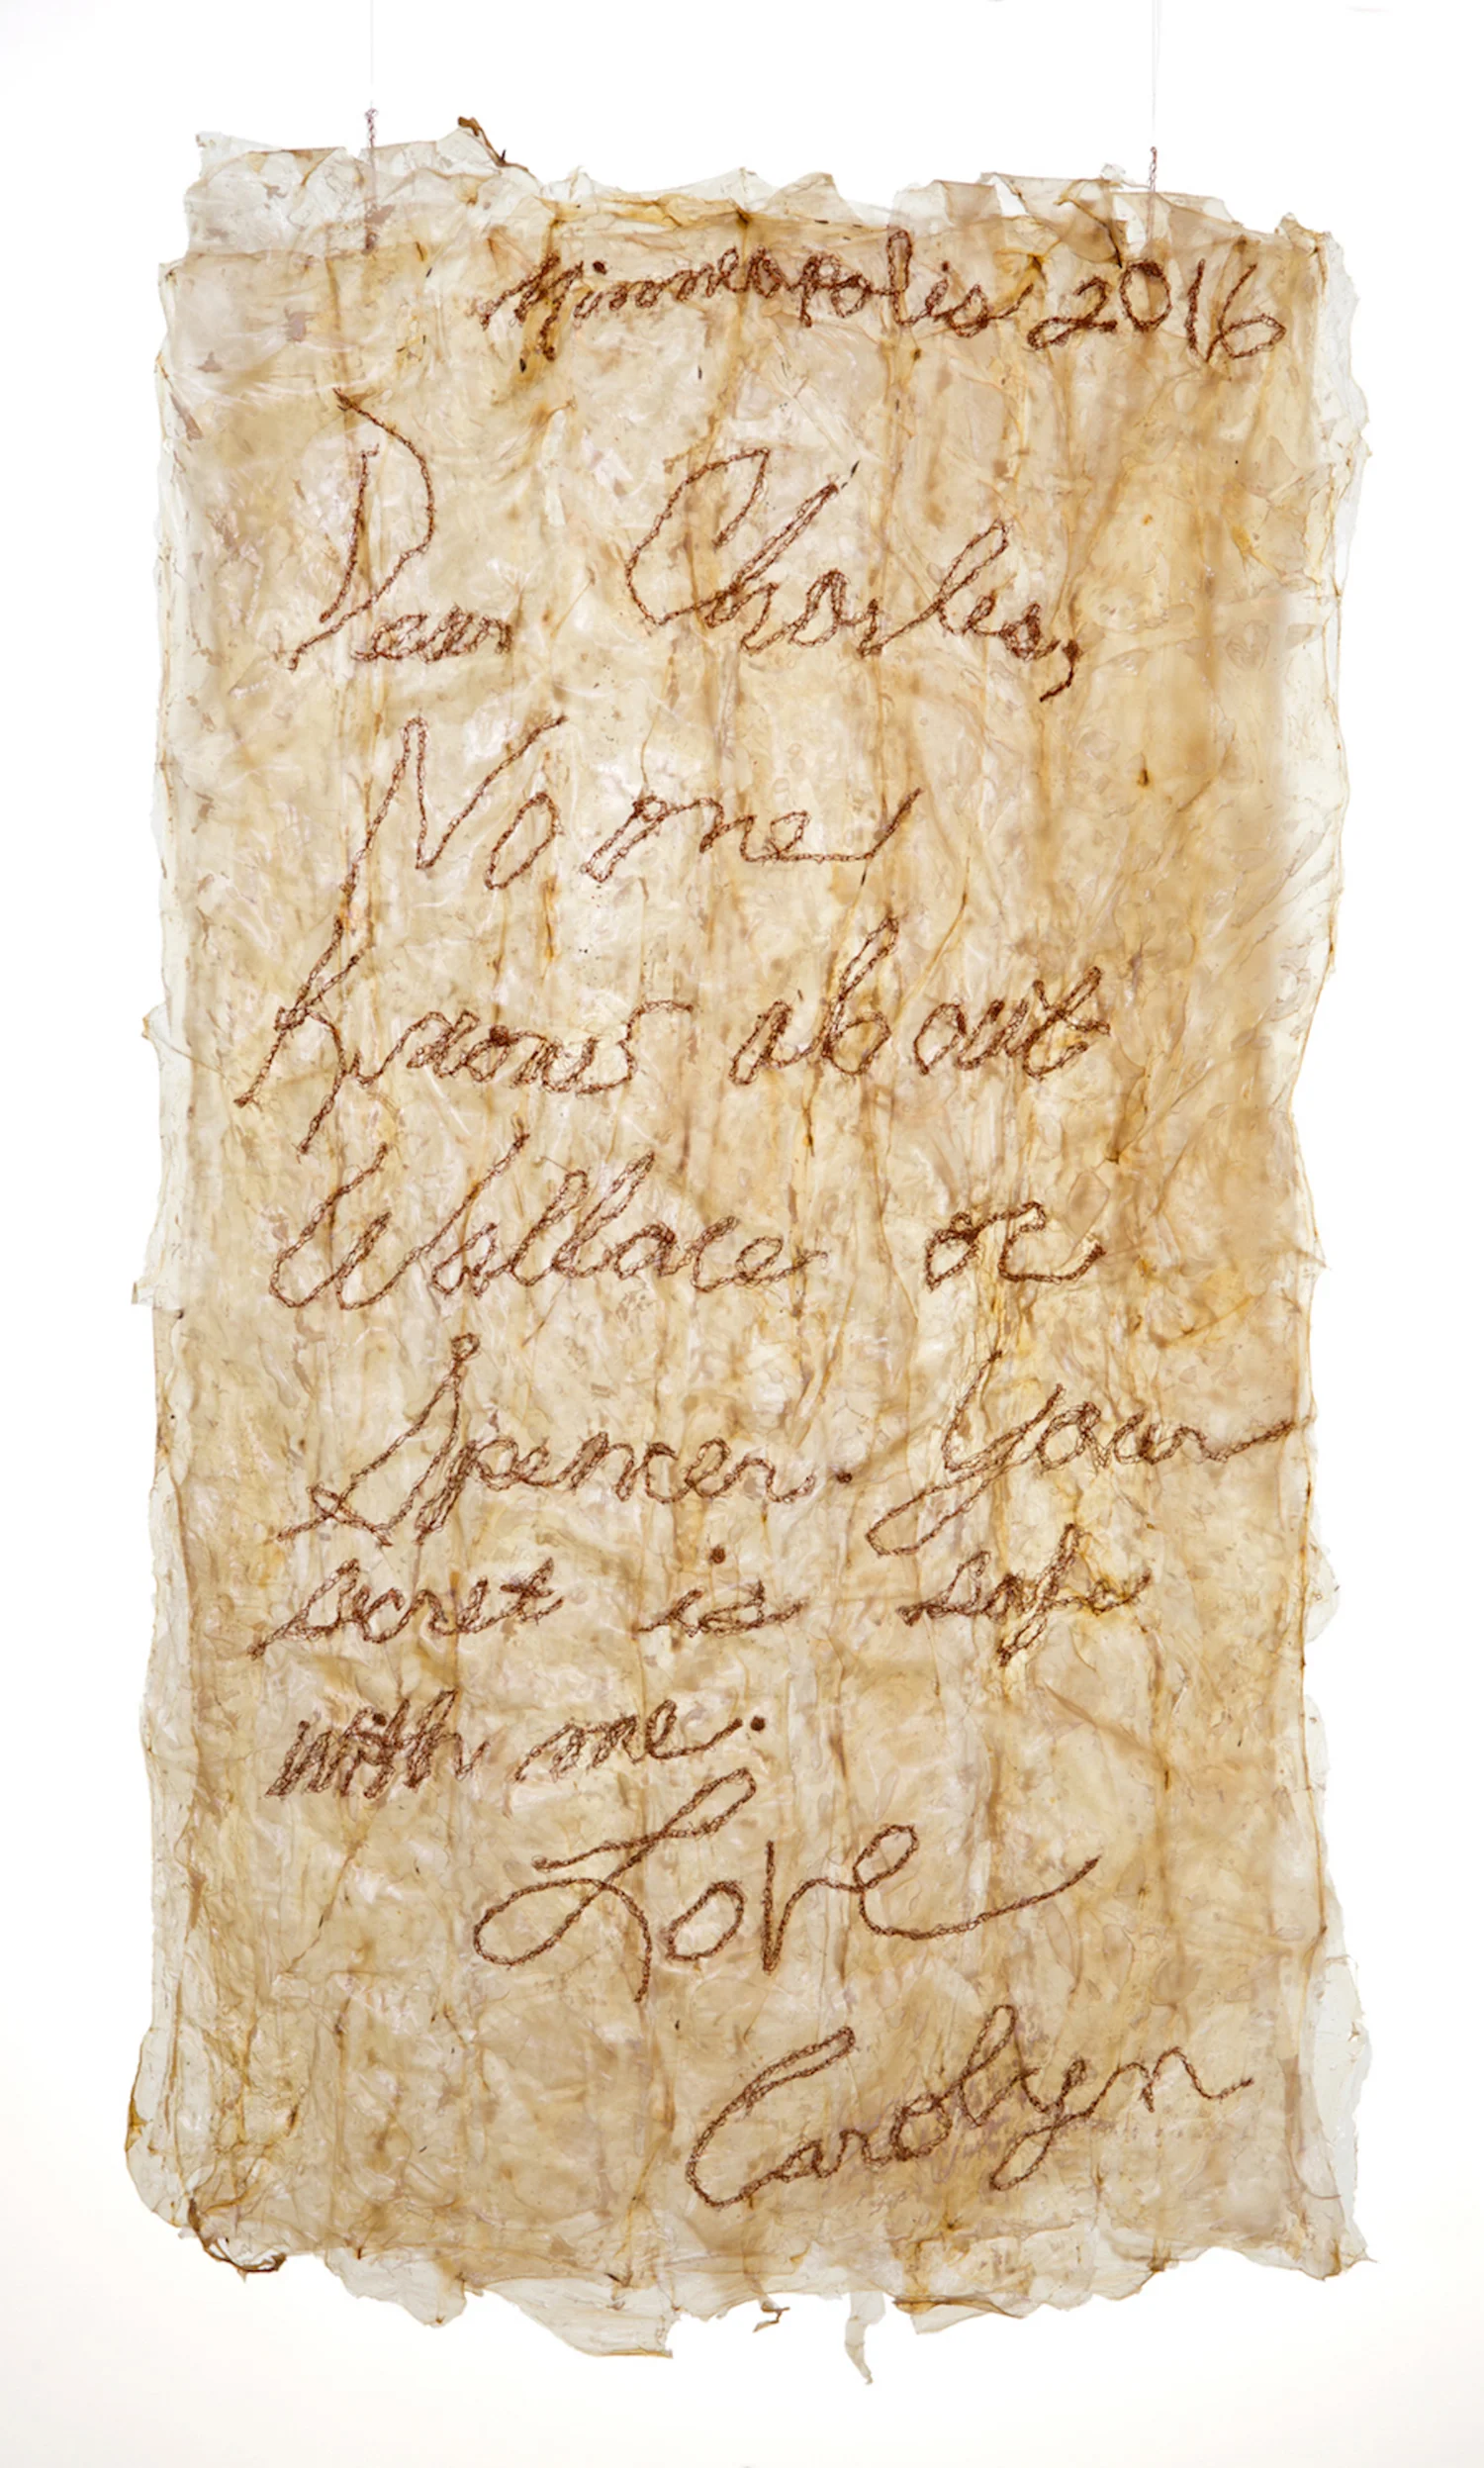 Minneapolis 2016
Dear Charles,
No one
knows about
Wallace or
Spencer. Your
secret is safe
with me.
Love
Carolyn